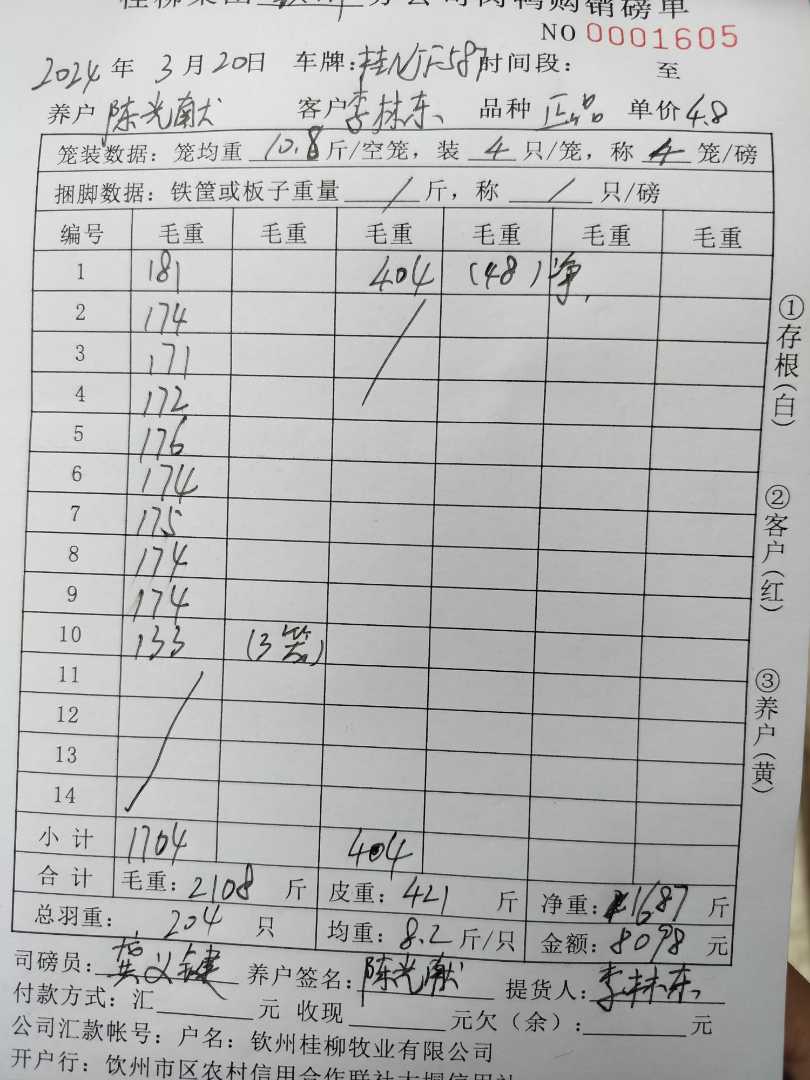 桂柳集团 分公司肉鸭购销磅单
NO 0001605
2024 年 3 月 20 日 车牌：桂NJF587 时间段： 至
养户 陈光献 客户 李林东 品种 正品 单价 4.8
笼装数据：笼均重 10.8 斤/空笼，装 4 只/笼，称 4 笼/磅
捆脚数据：铁筐或板子重量 / 斤，称 / 只/磅
编号 毛重 毛重 毛重 毛重 毛重 毛重
1 181 404 (48)净
2 174
3 171
4 172
5 176
6 174
7 175
8 174
9 174
10 133 (3笼)
11
12
13
14
小计 1704 404
合计 毛重：2108 斤 皮重：421 斤 净重：1687 斤
总羽重： 204 只 均重：8.2 斤/只 金额：8098 元
司磅员： 养户签名：陈光献 提货人：李林东
付款方式：汇 元 收现 元欠（余）： 元
公司汇款帐号：户名：钦州桂柳牧业有限公司
开户行：钦州市区农村信用合作联社大垌信用社
①存根(白)
②客户(红)
③养户(黄)